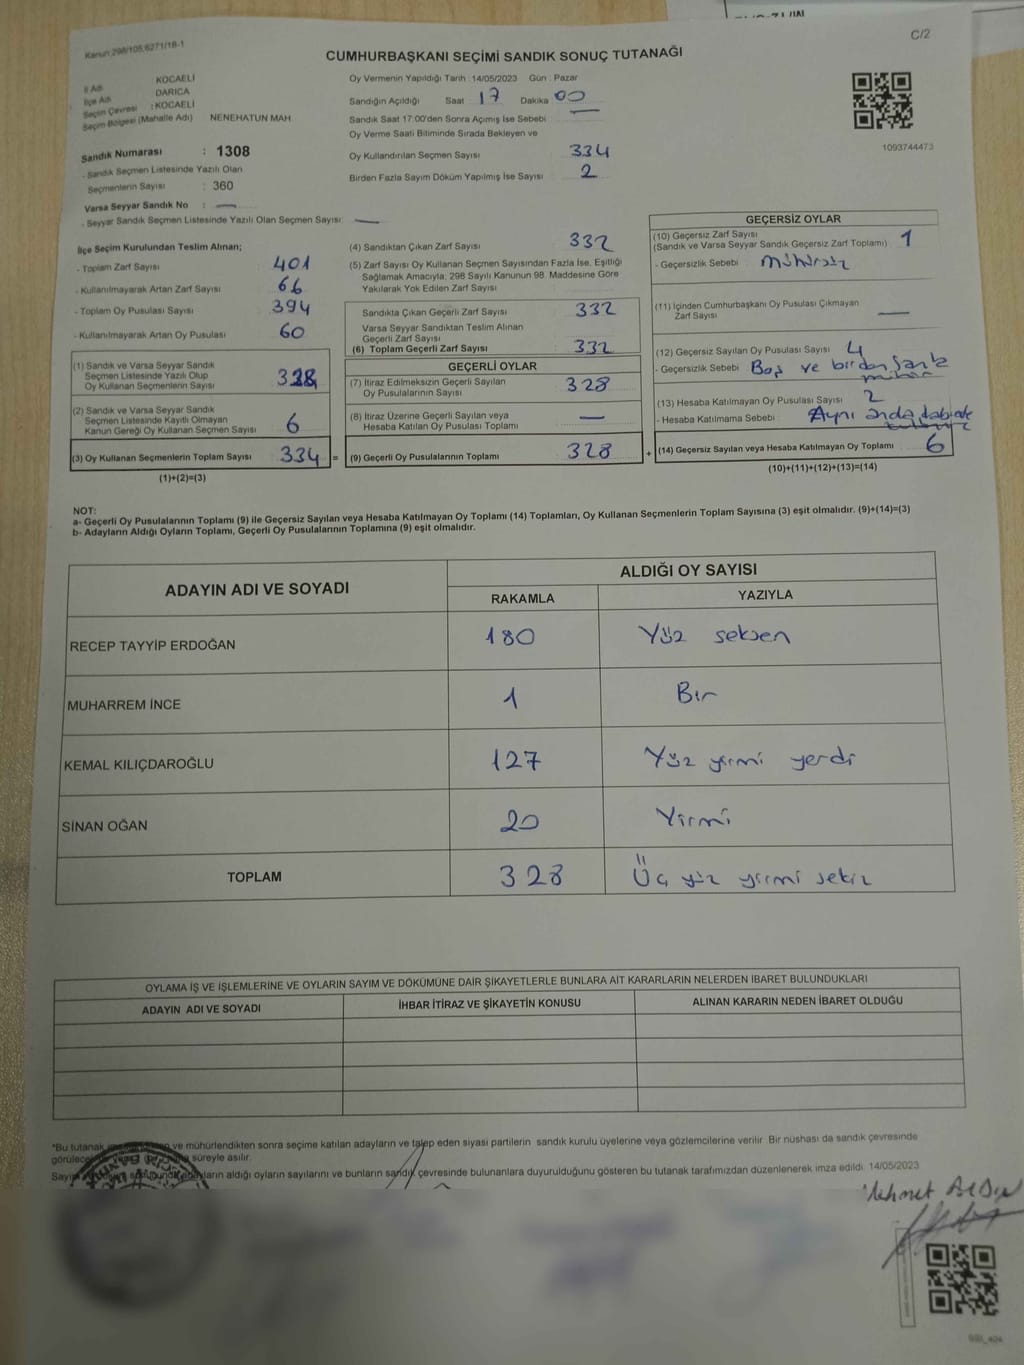 Kanun:298/105,6271/18-1
C/2
CUMHURBAŞKANI SEÇİMİ SANDIK SONUÇ TUTANAĞI
İl Adı KOCAELİ
İlçe Adı DARICA
Seçim Çevresi : KOCAELİ
Seçim Bölgesi (Mahalle Adı) NENEHATUN MAH.
Sandık Numarası : 1308
- Sandık Seçmen Listesinde Yazılı Olan
Seçmenlerin Sayısı : 360
Varsa Seyyar Sandık No : —
- Seyyar Sandık Seçmen Listesinde Yazılı Olan Seçmen Sayısı: —
Oy Vermenin Yapıldığı Tarih :14/05/2023 Gün : Pazar
Sandığın Açıldığı Saat 17 Dakika 00
Sandık Saat 17:00'den Sonra Açımış İse Sebebi —
Oy Verme Saati Bitiminde Sırada Bekleyen ve
Oy Kullandırılan Seçmen Sayısı 334
Birden Fazla Sayım Döküm Yapılmış İse Sayısı 2
1093744473
İlçe Seçim Kurulundan Teslim Alınan;
- Toplam Zarf Sayısı 401
- Kullanılmayarak Artan Zarf Sayısı 66
- Toplam Oy Pusulası Sayısı 394
- Kullanılmayarak Artan Oy Pusulası 60
(1) Sandık ve Varsa Seyyar Sandık
Seçmen Listesinde Yazılı Olup
Oy Kullanan Seçmenlerin Sayısı 328
(2) Sandık ve Varsa Seyyar Sandık
Seçmen Listesinde Kayıtlı Olmayan
Kanun Gereği Oy Kullanan Seçmen Sayısı 6
(3) Oy Kullanan Seçmenlerin Toplam Sayısı 334 =
(1)+(2)=(3)
(4) Sandıktan Çıkan Zarf Sayısı 332
(5) Zarf Sayısı Oy Kullanan Seçmen Sayısından Fazla İse, Eşitliği
Sağlamak Amacıyla; 298 Sayılı Kanunun 98. Maddesine Göre
Yakılarak Yok Edilen Zarf Sayısı
Sandıkta Çıkan Geçerli Zarf Sayısı 332
Varsa Seyyar Sandıktan Teslim Alınan
Geçerli Zarf Sayısı
(6) Toplam Geçerli Zarf Sayısı 332
GEÇERLİ OYLAR
(7) İtiraz Edilmeksizin Geçerli Sayılan
Oy Pusulalarının Sayısı 328
(8) İtiraz Üzerine Geçerli Sayılan veya
Hesaba Katılan Oy Pusulası Toplamı —
(9) Geçerli Oy Pusulalarının Toplamı 328 +
GEÇERSİZ OYLAR
(10) Geçersiz Zarf Sayısı
(Sandık ve Varsa Seyyar Sandık Geçersiz Zarf Toplamı) 1
- Geçersizlik Sebebi mühürsüz
(11) İçinden Cumhurbaşkanı Oy Pusulası Çıkmayan
Zarf Sayısı —
(12) Geçersiz Sayılan Oy Pusulası Sayısı 4
- Geçersizlik Sebebi Boş ve birden fazla
mühür
(13) Hesaba Katılmayan Oy Pusulası Sayısı 2
- Hesaba Katılmama Sebebi : Aynı anda
(14) Geçersiz Sayılan veya Hesaba Katılmayan Oy Toplamı 6
(10)+(11)+(12)+(13)=(14)
NOT:
a- Geçerli Oy Pusulalarının Toplamı (9) ile Geçersiz Sayılan veya Hesaba Katılmayan Oy Toplamı (14) Toplamları, Oy Kullanan Seçmenlerin Toplam Sayısına (3) eşit olmalıdır. (9)+(14)=(3)
b- Adayların Aldığı Oyların Toplamı, Geçerli Oy Pusulalarının Toplamına (9) eşit olmalıdır.
ADAYIN ADI VE SOYADI ALDIĞI OY SAYISI
RAKAMLA YAZIYLA
RECEP TAYYİP ERDOĞAN 180 Yüz seksen
MUHARREM İNCE 1 Bir
KEMAL KILIÇDAROĞLU 127 Yüz yirmi yerdi
SİNAN OĞAN 20 Yirmi
TOPLAM 328 Üç yüz yirmi sekiz
OYLAMA İŞ VE İŞLEMLERİNE VE OYLARIN SAYIM VE DÖKÜMÜNE DAİR ŞİKAYETLERLE BUNLARA AİT KARARLARIN NELERDEN İBARET BULUNDUKLARI
ADAYIN ADI VE SOYADI İHBAR İTİRAZ VE ŞİKAYETİN KONUSU ALINAN KARARIN NEDEN İBARET OLDUĞU
*Bu tutanak ve mühürlendikten sonra seçime katılan adayların ve talep eden siyasi partilerin sandık kurulu üyelerine veya gözlemcilerine verilir. Bir nüshası da sandık çevresinde
süreyle asılır.
aldığı oyların sayılarını ve bunların sandık çevresinde bulunanlara duyurulduğunu gösteren bu tutanak tarafımızdan düzenlenerek imza edildi. 14/05/2023
Mehmet Aydın